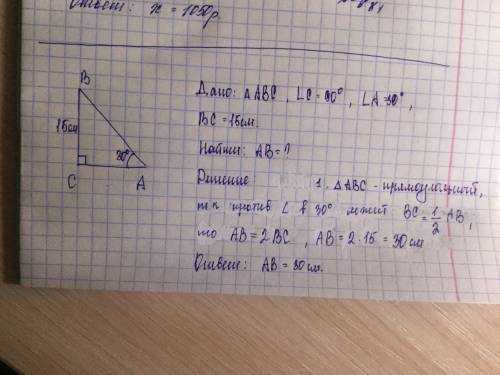 Ответ: x = 1050р.
B
15см
30°
C A
Дано: △ABC, ∠C=90°, ∠A=30°,
BC=15см.
Найти: AB=?
Решение: 1. △ABC - прямоугольный,
т.к против ∠ в 30° лежит BC=1/2 AB,
то AB=2BC, AB=2·15=30см
Ответ: AB=30см.